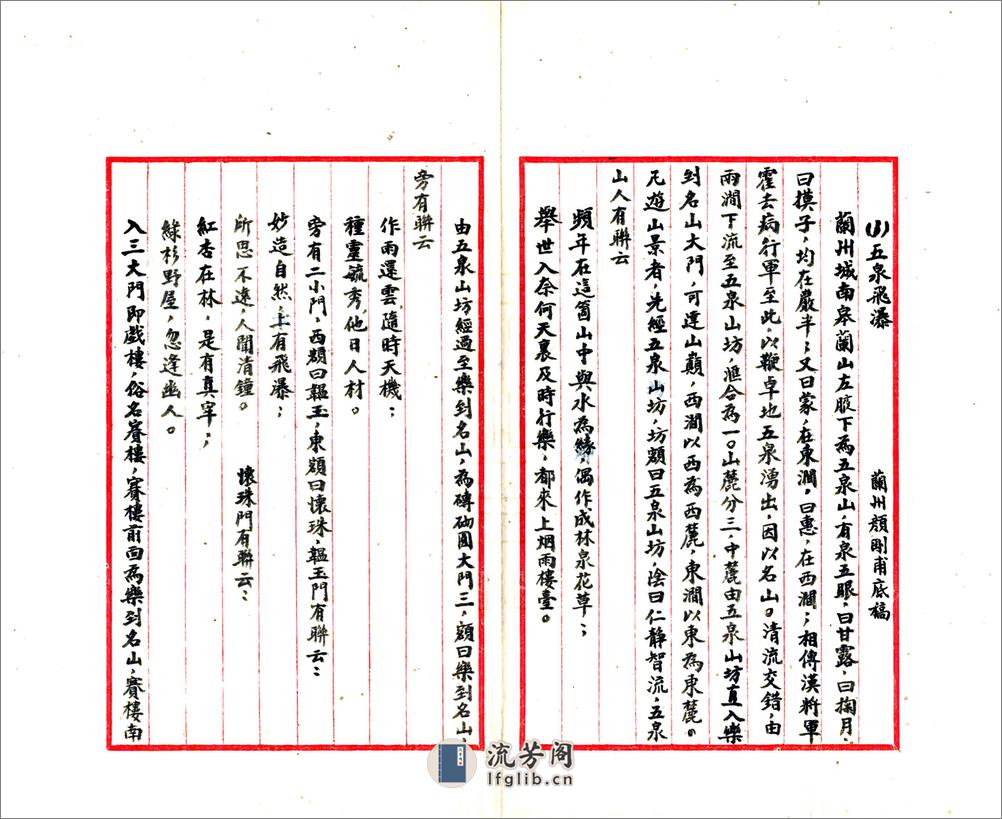 (1)五泉飛瀑
蘭州顏剛甫底稿
蘭州城南皋蘭山左腋下為五泉山，有泉五眼，曰甘露，曰掬月，
曰摸子，均在巖半；又曰蒙，在東澗，曰惠，在西澗；相傳漢將軍
霍去病行軍至此，以鞭卓地五泉湧出，因以名山。清流交錯，由
兩澗下流至五泉山坊，滙合為一。山麓分三，中麓由五泉山坊直入樂
到名山大門，可達山巔，西澗以西為西麓，東澗以東為東麓。
凡遊山景者，先經五泉山坊，坊額曰五泉山坊，陰曰仁靜智流，五泉
山人有聯云
頻年石這箇山中與水為緣，偶作成林泉花草；
舉世入奈何天裏及時行樂，都來上烟雨樓臺。
由五泉山坊經過至樂到名山，為磚砌圓大門三，額曰樂到名山，
旁有聯云
作雨還雲，隨時天機；
種靈毓秀，他日人材。
旁有二小門，西額曰韞玉，東額曰懷珠，韞玉門有聯云：
妙造自然，上有飛瀑；
所思不遠，人聞清鐘。
懷珠門有聯云：
紅杏在林，是有真宰；
綠杉野屋，忽逢幽人。
入三大門即戲樓，俗名賽樓，賽樓前面為樂到名山，賽樓南
流芳阁
lfglib.cn